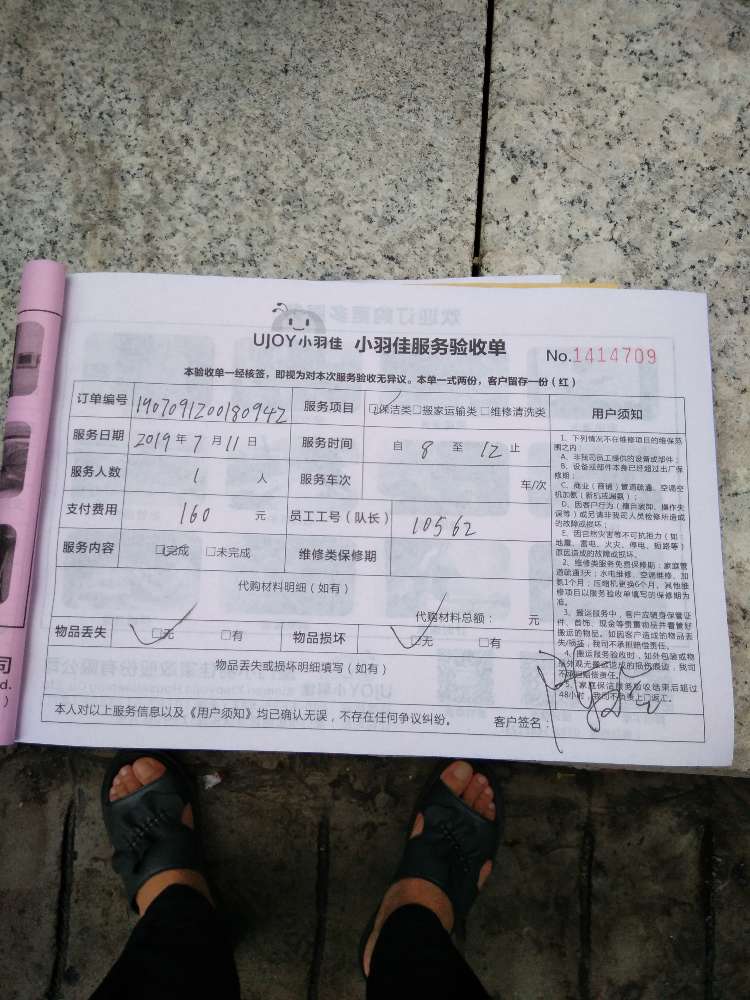 UJOY小羽佳 小羽佳服务验收单 No.1414709
本验收单一经核签，即视为对本次服务验收无异议。本单一式两份，客户留存一份（红）
订单编号 1907091200180942 服务项目 □保洁类□搬家运输类□维修清洗类 用户须知
服务日期 2019年7月11日 服务时间 自 8 至 12 止
服务人数 1 人 服务车次 车/次
支付费用 160 元 员工工号（队长） 10562
服务内容 □完成 □未完成 维修类保修期
代购材料明细（如有）
代购材料总额： 元
物品丢失 □无 □有 物品损坏 □无 □有
物品丢失或损坏明细填写（如有）
本人对以上服务信息以及《用户须知》均已确认无误，不存在任何争议纠纷。 客户签名：
1、下列情况不在维修项目的维保范
围之内
A、非我司员工提供的设备或部件；
B、设备或部件本身已经超过出厂保
修期；
C、商业（商铺）管道疏通、空调空
机加氨（新机或漏氨）；
D、因客户行为（擅自装卸、操作失
误等）或另请非我司人员检修所造成
的故障或损坏；
E、因自然灾害等不可抗拒力（如：
地震、雷电、火灾、停电、短路等）
原因造成的故障或损坏。
2、维修类服务免费保修期：家庭管
道疏通3天；水电维修、空调维修、加
氨1个月；压缩机更换6个月。其他维
修项目以服务验收单填写的保修期为
准。
3、搬运服务中，客户应随身保管证
件、首饰、现金等贵重物品并看管好
搬运的物品。如因客户造成的物品丢
失/损毁，我司不承担赔偿责任。
4、搬运服务验收时，如外包装或物
品外观无撞击造成的损伤痕迹，我司
不承担赔偿责任。
5、家庭保洁服务验收结束后超过
48小时，我司不负责上门返工。
司
d.
)